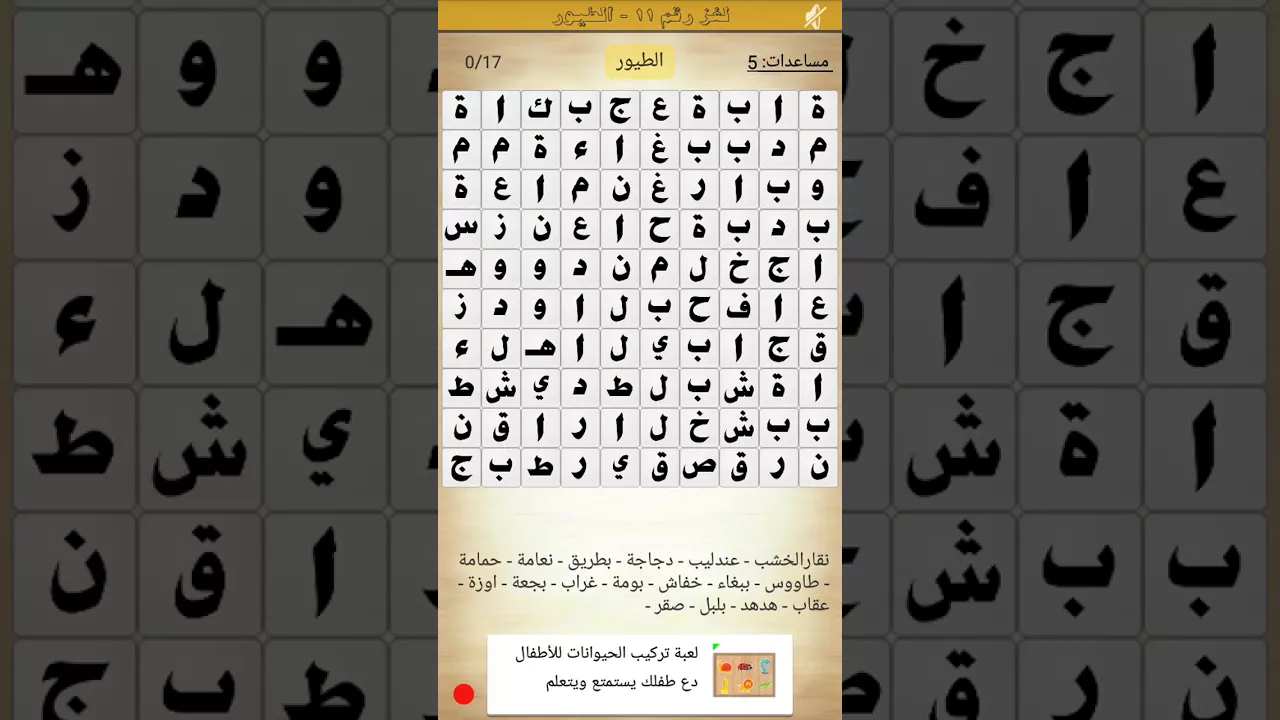 لغز رقم ١١ - الطيور
مساعدات: 5
الطيور
0/17
ة ا ب ة ع ج ب ك ا ة
م د ب ب غ ا ء ة م م
و ب ا ر غ ن م ا ع ة
ب د ب ة ح ا ع ن ز س
ا ج خ ل م ن د و و هـ
ع ا ف ح ب ل ا و د ز
ق ج ا ب ي ل ا هـ ل ء
ا ة ش ب ل ط د ي ش ط
ب ب ش خ ل ا ر ا ق ن
ن ر ق ص ق ي ر ط ب ج
نقارالخشب - عندليب - دجاجة - بطريق - نعامة - حمامة
- طاووس - ببغاء - خفاش - بومة - غراب - بجعة - اوزة -
عقاب - هدهد - بلبل - صقر -
لعبة تركيب الحيوانات للأطفال
دع طفلك يستمتع ويتعلم